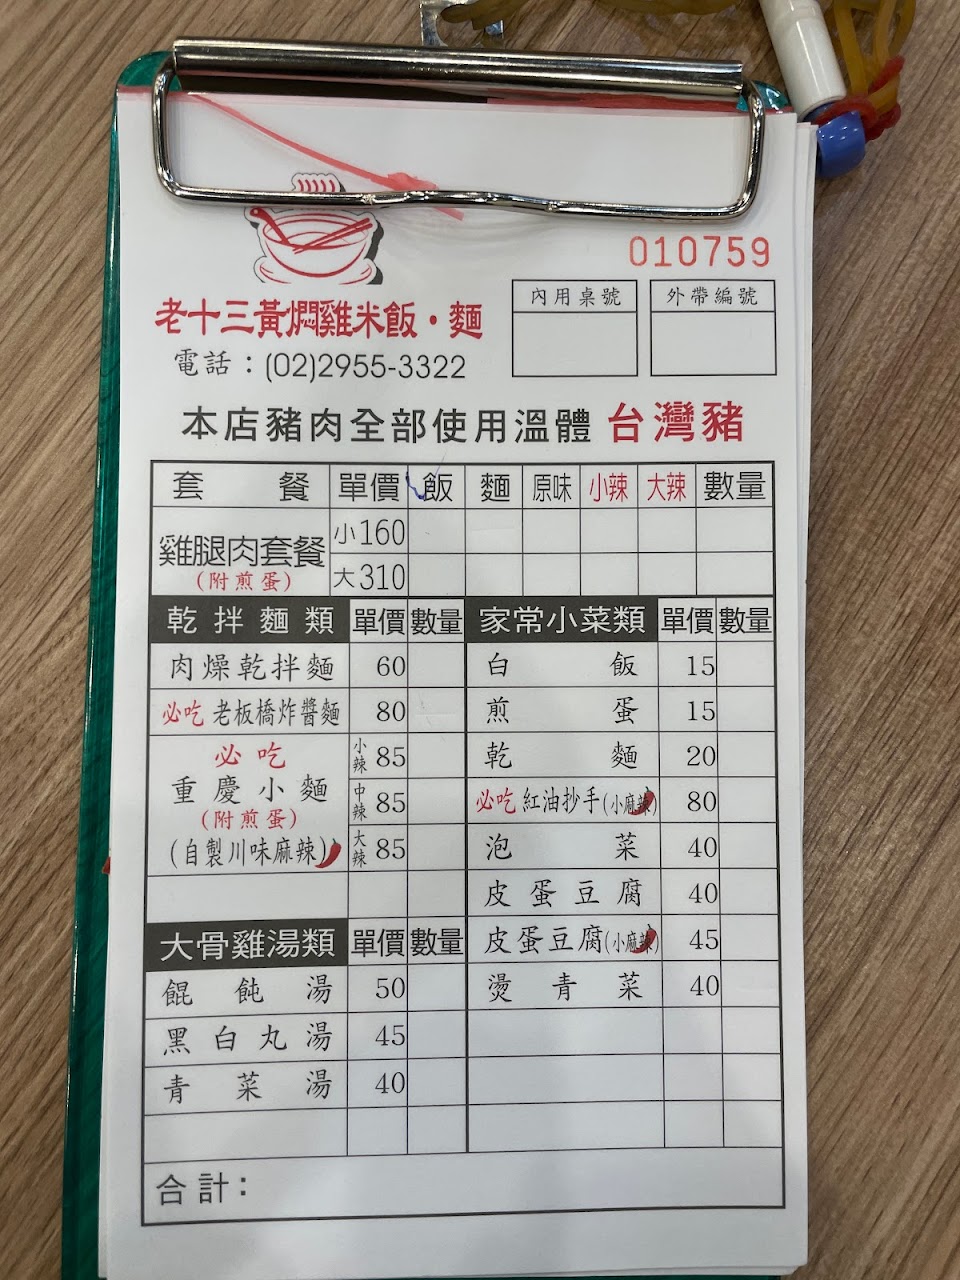 010759
內用桌號 外帶編號
老十三黃燜雞米飯・麵
電話：(02)2955-3322
本店豬肉全部使用溫體 台灣豬
套餐 單價 飯 麵 原味 小辣 大辣 數量
雞腿肉套餐 小160
(附煎蛋) 大310
乾拌麵類 單價 數量
肉燥乾拌麵 60
必吃 老板橋炸醬麵 80
必吃 小辣 85
重慶小麵 中辣 85
(附煎蛋)
(自製川味麻辣) 大辣 85
大骨雞湯類 單價 數量
餛飩湯 50
黑白丸湯 45
青菜湯 40
家常小菜類 單價 數量
白飯 15
煎蛋 15
乾麵 20
必吃 紅油抄手(小麻辣) 80
泡菜 40
皮蛋豆腐 40
皮蛋豆腐(小麻辣) 45
燙青菜 40
合計：